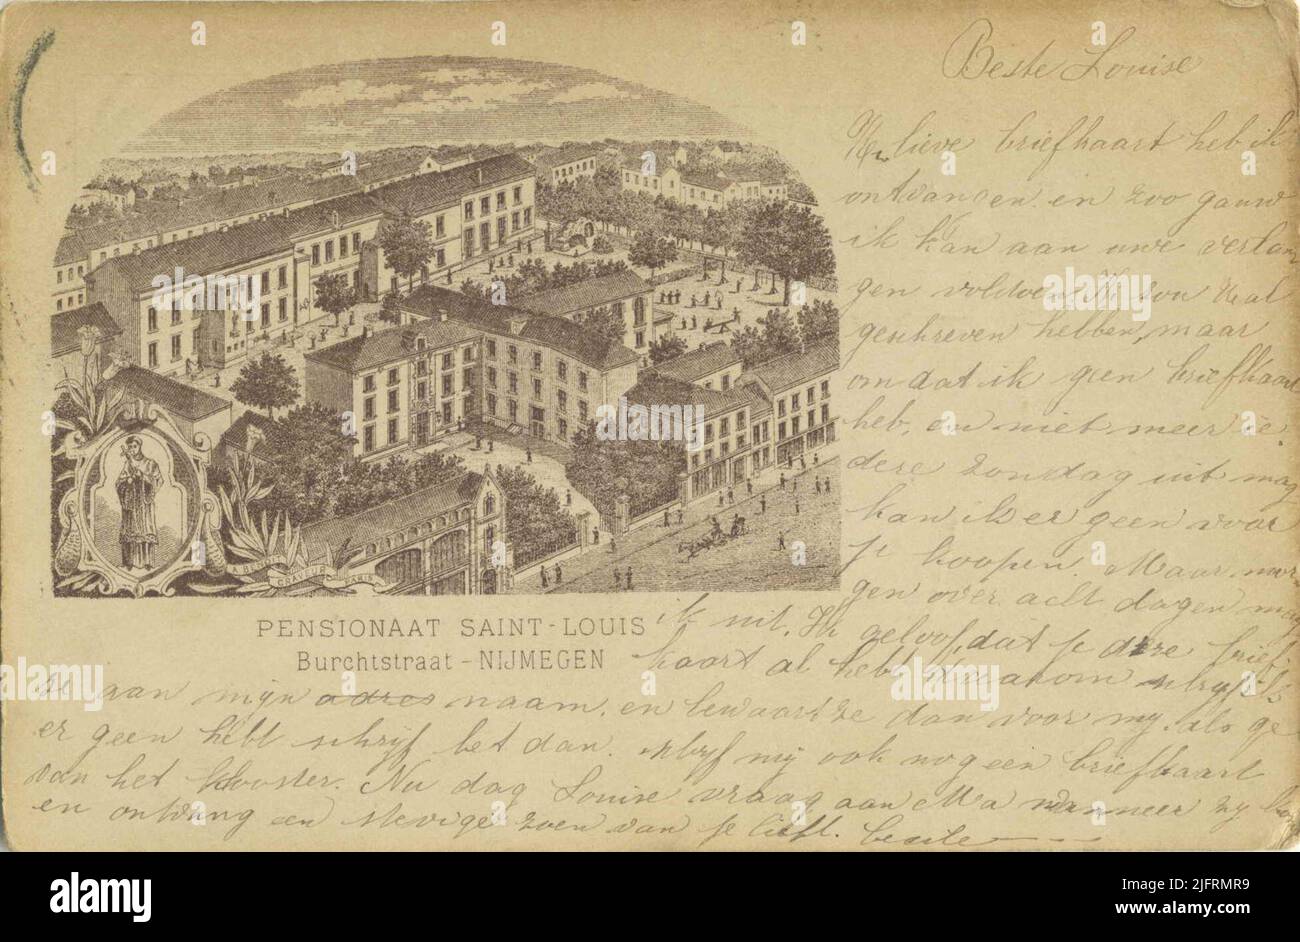 Beste Louise
Uw lieve briefkaart heb ik
ontvangen en zoo gauw
ik kan aan uwe verlan
gen voldoen. Ik zou u al
geschreven hebben, maar
omdat ik geen briefkaart
heb, en niet meer ie
dere zondag uit mag
kan ik er geen voor
je koopen. Maar mor
gen over acht dagen mag
ik uit. Ik geloof, dat je deze brief
kaart al hebt daarom schrijf ik
ze aan mijn adres naam. en bewaart ze dan voor my. als ge
er geen hebt schrijf het dan. schryf my ook nog een briefkaart
van het klooster. Nu dag Louise vraag aan Ma wanneer zy
en ontvang een stevige zoen van je liefh.
PENSIONAAT SAINT-LOUIS
Burchtstraat - NIJMEGEN
GRATIA
alamy
Image ID: 2JFRMR9
www.alamy.com